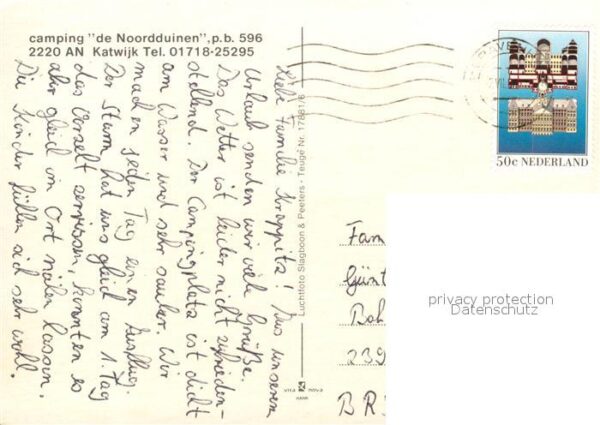 camping "de Noordduinen", p.b. 596
2220 AN Katwijk Tel. 01718-25295
Liebe Familie
! Aus unserem
Urlaub senden wir viele Grüße.
Das Wetter ist leider nicht zufrieden-
stellend. Der Campingplatz ist dicht
am Wasser und sehr sauber. Wir
machen jeden Tag einen Ausflug.
Der Sturm hat uns gleich am 1. Tag
das Vorzelt zerrissen, konnten es
aber gleich im Ort nähen lassen.
Die Kinder fühlen sich sehr wohl.
Luchtfoto Slagboom & Peeters - Teuge Nr. 17881/6
VITA NOVA
50c NEDERLAND
Fam
Günt
239
BR
privacy protection
Datenschutz